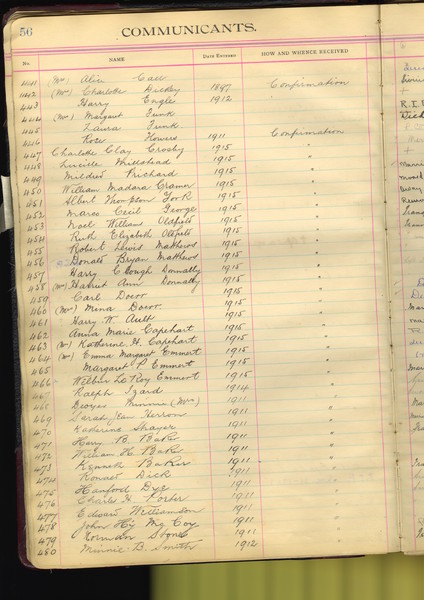 56
COMMUNICANTS.
No. NAME DATE ENTERED HOW AND WHENCE RECEIVED
441 (Mrs) Alice Carr
442 (Mrs) Charlotte Dickey 1897 Confirmation
443 Harry Engle 1912 "
444 (Mrs) Margaret Funk
445 Laura Funk
446 Rose 1911 Confirmation
447 Charlotte Clay Crosby 1915 "
448 Lucille 1915 "
449 Mildred Prichard 1915 "
450 William Madara Cramer 1915 "
451 Albert Thompson York 1915 "
452 Marco Cecil George 1915 "
453 Noel William Oldfield 1915 "
454 Ruth Elizabeth Oldfield 1915 "
455 Robert Lewis Matthews 1915 "
456 Donald Bryan Matthews 1915 "
457 Harry Clough Donnally 1915 "
458 (Mrs) Harriet Ann Donnally 1915 "
459 Carl 1915 "
460 (Mrs) Mina 1915 "
461 Harry W Ault 1915 "
462 Anna Marie Capehart 1915 "
463 (Mrs) Katherine H. Capehart 1915 "
464 (Mrs) Emma Margaret Emmert 1915 "
465 Margaret P Emmert 1915 "
466 Wilbur LeRoy Emmert 1915 "
467 Ralph Izard 1914 "
468 (Mrs) 1911 "
469 Sarah Jean Herron 1911 "
470 Katherine Shayer 1911 "
471 Henry B. Baker 1911 "
472 William H. Baker 1911 "
473 Kenneth Baker 1911 "
474 Dick 1911 "
475 Hanford Dye 1911 "
476 Charles H. Porter 1911 "
477 Edward Williamson 1911 "
478 John Hy McCoy 1911 "
479 Norman Stone 1911 "
480 Minnie B. Smith 1912 "